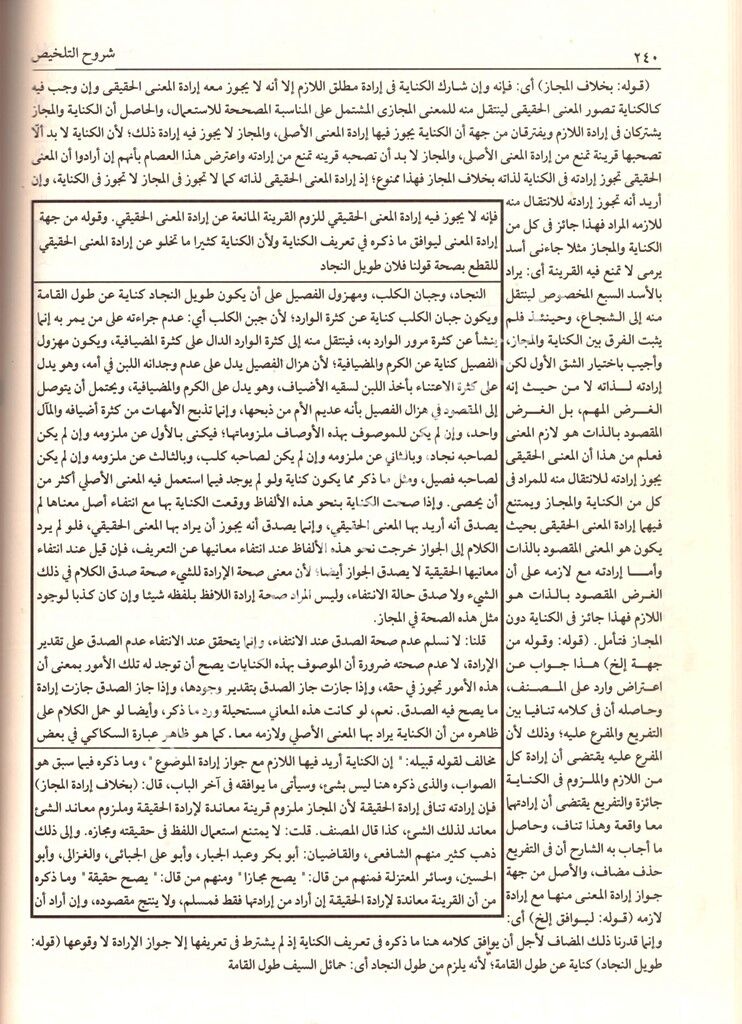 ٢٤٠
شروح التلخيص
(قوله: بخلاف المجاز) أى: فإنه وإن شارك الكناية فى إرادة مطلق اللازم إلا أنه لا يجوز معه إرادة المعنى الحقيقى وإن وجب فيه
كالكناية تصور المعنى الحقيقى لينتقل منه للمعنى المجازى المشتمل على المناسبة المصححة للاستعمال، والحاصل أن الكناية والمجاز
يشتركان فى إرادة اللازم ويفترقان من جهة أن الكناية يجوز فيها إرادة المعنى الأصلى، والمجاز لا يجوز فيه إرادة ذلك؛ لأن الكناية لا بد ألا
تصحبها قرينة تمنع من إرادة المعنى الأصلى، والمجاز لا بد أن تصحبه قرينه تمنع من إرادته واعترض هذا العصام بأنهم إن أرادوا أن المعنى
الحقيقى تجوز إرادته فى الكناية لذاته بخلاف المجاز فهذا ممنوع؛ إذ إرادة المعنى الحقيقى لذاته كما لا تجوز فى المجاز لا تجوز فى الكناية، وإن
أريد أنه تجوز إرادته للانتقال منه
للازمه المراد فهذا جائز فى كل من
الكناية والمجاز مثلا جاءنى أسد
يرمى لا تمنع فيه القرينة أى: يراد
بالأسد السبع المخصوص لينتقل
منه إلى الشجاع، وحينئذ فلم
يثبت الفرق بين الكناية والمجاز،
وأجيب باختيار الشق الأول لكن
إرادته لذاته لا من حيث إنه
الغرض المهم، بل الغرض
المقصود بالذات هو لازم المعنى
فعلم من هذا أن المعنى الحقيقى
يجوز إرادته للانتقال منه للمراد فى
كل من الكناية والمجاز ويمتنع
فيهما إرادة المعنى الحقيقى بحيث
يكون هو المعنى المقصود بالذات
وأما إرادته مع لازمه على أن
الغرض المقصود بالذات هو
اللازم فهذا جائز فى الكناية دون
المجاز فتأمل. (قوله: وقوله من
جهة إلخ) هذا جواب عن
اعتراض وارد على المصنف،
وحاصله أن فى كلامه تنافيا بين
التفريع والمفرع عليه؛ وذلك لأن
المفرع عليه يقتضى أن إرادة كل
من اللازم والملزوم فى الكناية
جائزة والتفريع يقتضى أن إرادتهما
معا واقعة وهذا تناف، وحاصل
ما أجاب به الشارح أن فى التفريع
حذف مضاف، والأصل من جهة
جواز إرادة المعنى منها مع إرادة
لازمه (قوله: ليوافق إلخ) أى:
فإنه لا يجوز فيه إرادة المعنى الحقيقي للزوم القرينة المانعة عن إرادة المعنى الحقيقي. وقوله من جهة
إرادة المعنى ليوافق ما ذكره في تعريف الكناية ولأن الكناية كثيرا ما تخلو عن إرادة المعنى الحقيقي
للقطع بصحة قولنا فلان طويل النجاد
النجاد، وجبان الكلب، ومهزول الفصيل على أن يكون طويل النجاد كناية عن طول القامة
ويكون جبان الكلب كناية عن كثرة الوارد؛ لأن جبن الكلب أي: عدم جراءته على من يمر به إنما
ينشأ عن كثرة مرور الوارد به، فينتقل منه إلى كثرة الوارد الدال على كثرة المضيافية، ويكون مهزول
الفصيل كناية عن الكرم والمضيافية؛ لأن هزال الفصيل يدل على عدم وجدانه اللبن في أمه، وهو يدل
على كثرة الاعتناء بأخذ اللبن لسقيه الأضياف، وهو يدل على الكرم والمضيافية، ويحتمل أن يتوصل
إلى المقصود في هزال الفصيل بأنه عديم الأم من ذبحها، وإنما تذبح الأمهات من كثرة أضيافه والمآل
واحد، وإن لم يكن للموصوف بهذه الأوصاف ملزوماتها؛ فيكنى بالأول عن ملزومه وإن لم يكن
لصاحبه نجاد، وبالثاني عن ملزومه وإن لم يكن لصاحبه كلب، وبالثالث عن ملزومه وإن لم يكن
لصاحبه فصيل، ومثل ما ذكر مما يكون كناية ولو لم يوجد فيما استعمل فيه المعنى الأصلي أكثر من
أن يحصى. وإذا صحت الكناية بنحو هذه الألفاظ ووقعت الكناية بها مع انتفاء أصل معناها لم
يصدق أنه أريد بها المعنى الحقيقي، وإنما يصدق أنه يجوز أن يراد بها المعنى الحقيقي، فلو لم يرد
الكلام إلى الجواز خرجت نحو هذه الألفاظ عند انتفاء معانيها عن التعريف، فإن قيل عند انتفاء
معانيها الحقيقية لا يصدق الجواز أيضا؛ لأن معنى صحة الإرادة للشيء صحة صدق الكلام في ذلك
الشيء ولا صدق حالة الانتفاء، وليس المراد صحة إرادة اللافظ بلفظه شيئا وإن كان كذبا لوجود
مثل هذه الصحة في المجاز.
قلنا: لا نسلم عدم صحة الصدق عند الانتفاء، وإنما يتحقق عند الانتفاء عدم الصدق على تقدير
الإرادة، لا عدم صحته ضرورة أن الموصوف بهذه الكنايات يصح أن توجد له تلك الأمور بمعنى أن
هذه الأمور تجوز في حقه، وإذا جازت جاز الصدق بتقدير وجودها، وإذا جاز الصدق جازت إرادة
ما يصح فيه الصدق. نعم، لو كانت هذه المعاني مستحيلة ورد ما ذكر، وأيضا لو حمل الكلام على
ظاهره من أن الكناية يراد بها المعنى الأصلي ولازمه معا. كما هو ظاهر عبارة السكاكي في بعض
مخالف لقوله قبيله: "إن الكناية أريد فيها اللازم مع جواز إرادة الموضوع"، وما ذكره فيما سبق هو
الصواب، والذى ذكره هنا ليس بشئ، وسيأتى ما يوافقه فى آخر الباب، قال: (بخلاف إرادة المجاز)
فإن إرادته تنافى إرادة الحقيقة لأن المجاز ملزوم قرينة معاندة لإرادة الحقيقة وملزوم معاند الشئ
معاند لذلك الشئ، كذا قال المصنف. قلت: لا يمتنع استعمال اللفظ فى حقيقته ومجازه. وإلى ذلك
ذهب كثير منهم الشافعى، والقاضيان: أبو بكر وعبد الجبار، وأبو على الجبائى، والغزالى، وأبو
الحسين، وسائر المعتزلة فمنهم من قال: "يصح مجازا" ومنهم من قال: "يصح حقيقة" وما ذكره
من أن القرينة معاندة لإرادة الحقيقة إن أراد من إرادتها فقط فمسلم، ولا ينتج مقصوده، وإن أراد أن
وإنما قدرنا ذلك المضاف لأجل أن يوافق كلامه هنا ما ذكره فى تعريف الكناية إذ لم يشترط فى تعريفها إلا جواز الإرادة لا وقوعها (قوله:
طويل النجاد) كناية عن طول القامة؛ لأنه يلزم من طول النجاد أى: حمائل السيف طول القامة